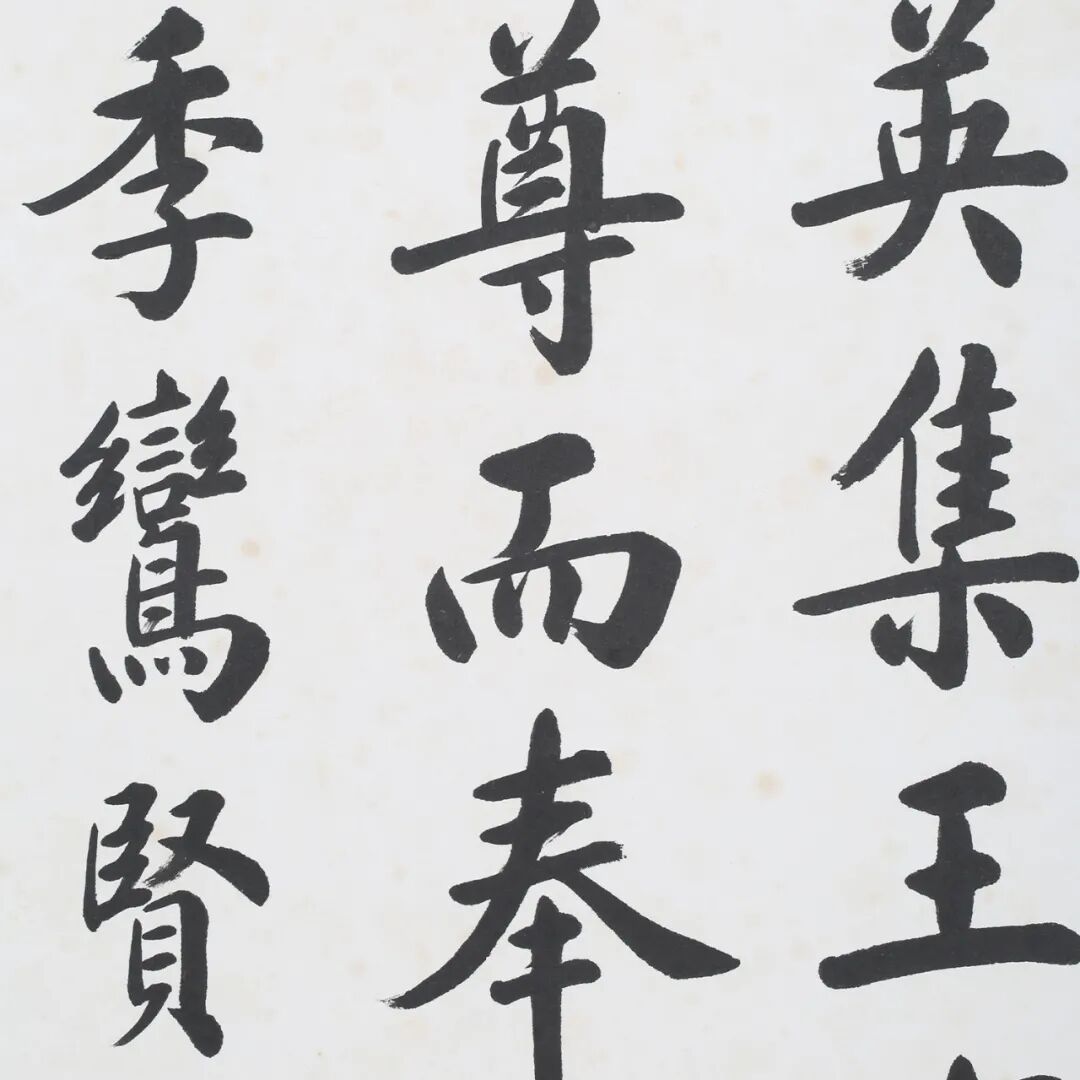 英集王
尊而奉
季鸞賢